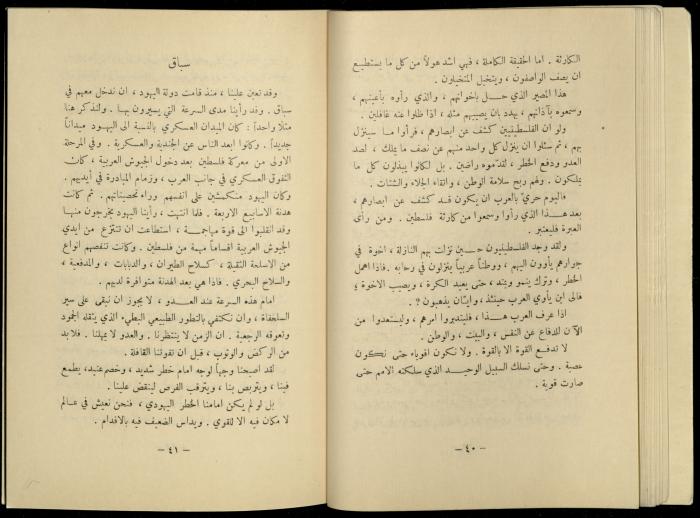 الكارثة . اما الحقيقة الكاملة ، فهي اشد هولاً من كل ما يستطيع
ان يصف الواصفون ، ويتخيل المتخيلون .
هذا المصير الذي حل باخوانهم ، والذي رأوه بأعينهم ،
وسمعوه بآذانهم ، يهدد بان يصيبهم مثله ، اذا ظلوا عنه غافلين .
ولو ان الفلسطينيين كشف عن ابصارهم ، فرأوا ما سينزل
بهم ، ثم سئلوا ان ينزل كل واحد منهم عن نصف ما يملك ، لصد
العدو ودفع الخطر ، لقدموه راضين . بل لكانوا يبذلون كل ما
يملكون . ولهم ربح سلامة الوطن ، واتقاء الجلاء والشتات .
فاليوم حري بالعرب ان يكون قد كشف عن ابصارهم ،
بعد هذا الذي رأوا وسمعوا من كارثة فلسطين . ومن رأى
العبرة فليعتبر .
ولقد وجد الفلسطينيون حين نزلت بهم النازلة ، اخوة في
جوارهم يأوون اليهم ، ووطناً عربياً ينزلون في رحابه . فاذا اهمل
الخطر ، وترك ينمو ويمتد ، حتى يعيد الكرة ، ويصيب الاخوة ؛
فالى اين يأوي العرب حينئذ ، واين يذهبون ؟ .
اذا عرف العرب هذا ، فليتدبروا امرهم ، وليستعدوا من
الآن للدفاع عن النفس ، والبيت ، والوطن .
لا تدفع القوة الا بالقوة . ولا نكون اقوياء حتى نكون
عصبة . وحتى نسلك السبيل الوحيد الذي سلكته الامم حتى
صارت قوية .
– ٤٠ –
سباق
وقد تعين علينا ، منذ قامت دولة اليهود ، ان ندخل معهم في
سباق . وقد رأينا مدى السرعة التي يسيرون بها . ولنذكر هنا
مثلاً واحداً : كان الميدان العسكري بالنسبة الى اليهود ميداناً
جديداً . وكانوا ابعد الناس عن الجندية والعسكرية . وفي المرحلة
الاولى من معركة فلسطين بعد دخول الجيوش العربية ، كان
التفوق العسكري في جانب العرب ، وزمام المبادرة في أيديهم .
وكان اليهود منكمشين على انفسهم وراء تحصيناتهم . ثم كانت
هدنة الاسابيع الاربعة . فلما انتهت ، رأينا اليهود يخرجون منها
وقد انقلبوا الى قوة مهاجمة ، استطاعت ان تنتزع من ايدي
الجيوش العربية اقساماً مهمة من فلسطين . وكانت تنقصهم انواع
من الاسلحة الثقيلة ، كسلاح الطيران ، والدبابات ، والمدفعية ،
والسلاح البحري . فاذا هي بعد الهدنة متوافرة لديهم .
امام هذه السرعة عند العدو ، لا يجوز ان نبقى على سير
السلحفاة ، وان نكتفي بالتطور الطبيعي البطيء الذي يثقله الجمود
وتعوقه الرجعية . ان الزمن لا ينتظرنا . والعدو لا يمهلنا . فلا بد
من الركض والوثوب ، قبل ان تفوتنا القافلة .
لقد اصبحنا وجهاً لوجه امام خطر شديد ، وخصم عنيد ، يطمع
فينا ، ويتربص بنا ، ويترقب الفرص لينقض علينا .
بل لو لم يكن امامنا الخطر اليهودي ، فنحن نعيش في عالم
لا مكان فيه الا للقوي . ويداس الضعيف فيه بالاقدام .
– ٤١ –